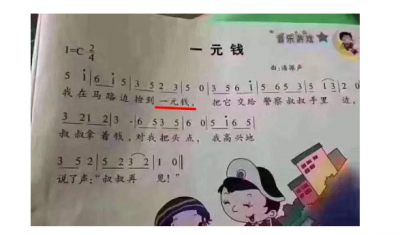 音乐游戏
1=C 2/4
一元钱
曲:潘振声
5 i | 6 i 5 | 3 5 2 3 | 5 0 | 3 5 6 i | 5 6 5 3 | 5 i 3 | 2 0 |
我在马路边拾到一元钱, 把它交给警察叔叔手里边,
3 21 2 3 - | 6 5 3 5 | 6 0 | 5 i 6 5 |
叔叔拿着钱,对我把头点,我高兴地
3 5 2 | 5 2 3 2 | 1 0 ‖
说了声:“叔叔再见!”